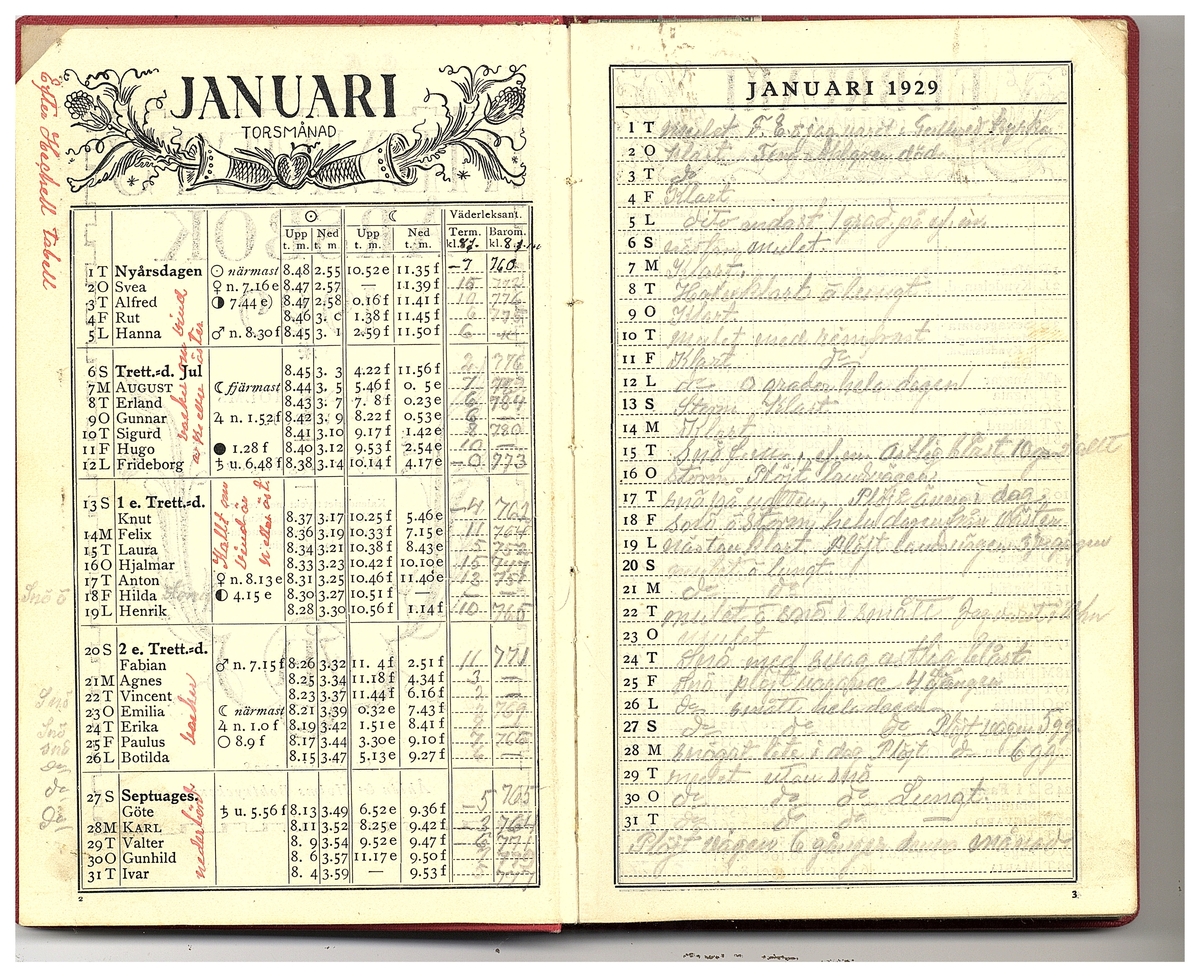 JANUARI
TORSMÅNAD
Efter Herschell Tabell
☉ ☾ Väderleksant.
Upp Ned Upp Ned Term. Barom.
t. m. t. m. t. m. t. m. kl. 8 f. kl. 8 f. m
1 T Nyårsdagen ☉ närmast 8.48 2.55 10.52 e 11.35 f −7 760
2 O Svea ♀ n. 7.16 e 8.47 2.57 — 11.39 f 15
3 T Alfred ◑ 7.44 e) 8.47 2.58 0.16 f 11.41 f 10 776
4 F Rut 8.46 3. 0 1.38 f 11.45 f 6
5 L Hanna ♂ n. 8.30 f 8.45 3. 1 2.59 f 11.50 f 6
6 S Trett.=d. Jul 8.45 3. 3 4.22 f 11.56 f 2 776
7 M AUGUST ☾ fjärmast 8.44 3. 5 5.46 f 0. 5 e 7
8 T Erland 8.43 3. 7 7. 8 f 0.23 e 6 784
9 O Gunnar ♃ n. 1.52 f 8.42 3. 9 8.22 f 0.53 e 6 —
10 T Sigurd 8.41 3.10 9.17 f 1.42 e 8 780
11 F Hugo ● 1.28 f 8.40 3.12 9.53 f 2.54 e 10 —
12 L Frideborg ♄ u. 6.48 f 8.38 3.14 10.14 f 4.17 e −0 773
vacker om vind
13 S 1 e. Trett.=d.
Knut 8.37 3.17 10.25 f 5.46 e −4 762
14 M Felix 8.36 3.19 10.33 f 7.15 e 11 764
15 T Laura 8.34 3.21 10.38 f 8.43 e 5 752
16 O Hjalmar 8.33 3.23 10.42 f 10.10 e 15
17 T Anton ♀ n. 8.13 e 8.31 3.25 10.46 f 11.40 e 12 751
18 F Hilda ◐ 4.15 e 8.30 3.27 10.51 f — — —
19 L Henrik 8.28 3.30 10.56 f 1.14 f 10 765
Kallt om
vind är
n eller öst.
Snö ö Storm
20 S 2 e. Trett.=d.
Fabian ♂ n. 7.15 f 8.26 3.32 11. 4 f 2.51 f 11 771
21 M Agnes 8.25 3.34 11.18 f 4.34 f 3 —
22 T Vincent 8.23 3.37 11.44 f 6.16 f 2 —
23 O Emilia ☾ närmast 8.21 3.39 0.32 e 7.43 f 2 769
24 T Erika ♃ n. 1.0 f 8.19 3.42 1.51 e 8.41 f
25 F Paulus ○ 8.9 f 8.17 3.44 3.30 e 9.10 f 7 766
26 L Botilda 8.15 3.47 5.13 e 9.27 f 6 —
vacker
Snö
Snö
snö
do
do
do
27 S Septuages.
Göte ♄ u. 5.56 f 8.13 3.49 6.52 e 9.36 f −5 765
28 M KARL 8.11 3.52 8.25 e 9.42 f −3 764
29 T Valter 8. 9 3.54 9.52 e 9.47 f −6 771
30 O Gunhild 8. 6 3.57 11.17 e 9.50 f
31 T Ivar 8. 4 3.59 — 9.53 f 5 777
nederbörd
2
JANUARI 1929
1 T mulet F. E o jag varit i Gothred Kyrka
2 O Klart död
3 T do
4 F Klart
5 L dito endast 1 grad på
6 S nästan mulet.
7 M Klart.
8 T Halvklart ö lungt
9 O Klart
10 T mulet med rimfrost
11 F Klart do
12 L do 0 grader hela dagen!
13 S Storm Klart
14 M Klart
15 T Snö f.m., ef.m. ostlig blåst 10 gr. kallt
16 O Storm Plöjt landsvägen
17 T snö på natten, Plöjt i dag.
18 F Snö ö Storm hela dagen från Västen
19 L nästan klart Plöjt landsvägen 3dje gången
20 S mulet ö lungt.
21 M do do
22 T mulet ö snö i smått
23 O mulet
24 T Snö med svag ostlig blåst
25 F Snö plöjt vägarna 4 gången
26 L do smått hela dagen
27 S do do do Plöjt vägen 5 gg.
28 M snögat lite i dag Plöjt do 6 gg.
29 T mulet utan snö
30 O do do do Lungt.
31 T do do do —
Plöjt vägen 6 gånger denna månad
3